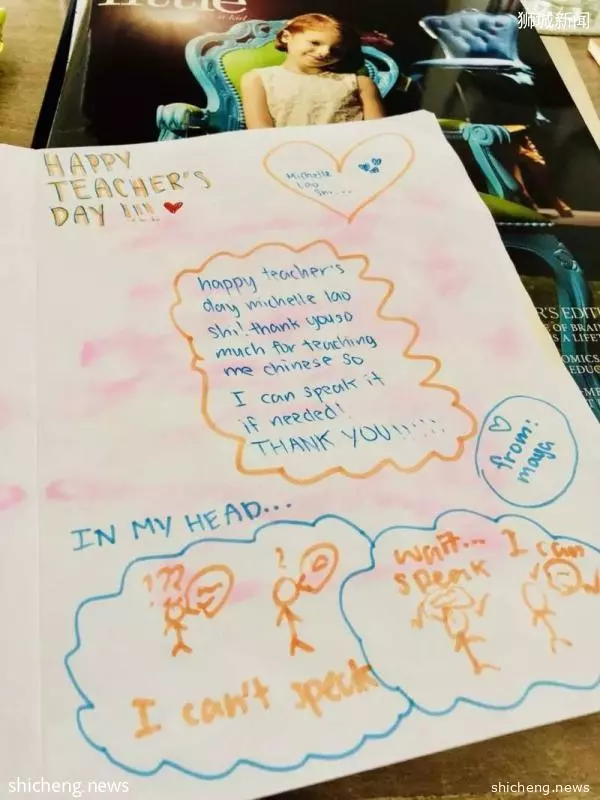 little
狮城新闻
HAPPY
TEACHER'S
DAY !!!!
Michelle
lao
shi...
happy teacher's
day michelle lao
shi! thank you so
much for teaching
me chinese so
I can speak it
if needed!
THANK YOU!!!!!!
from:
maya
IN MY HEAD...
???
?
I can't speak
wait... I can
speak
R'S EDITI
E OF BRAIN
S A LIFET
OMICS
EDUC
shicheng.news
shicheng.news